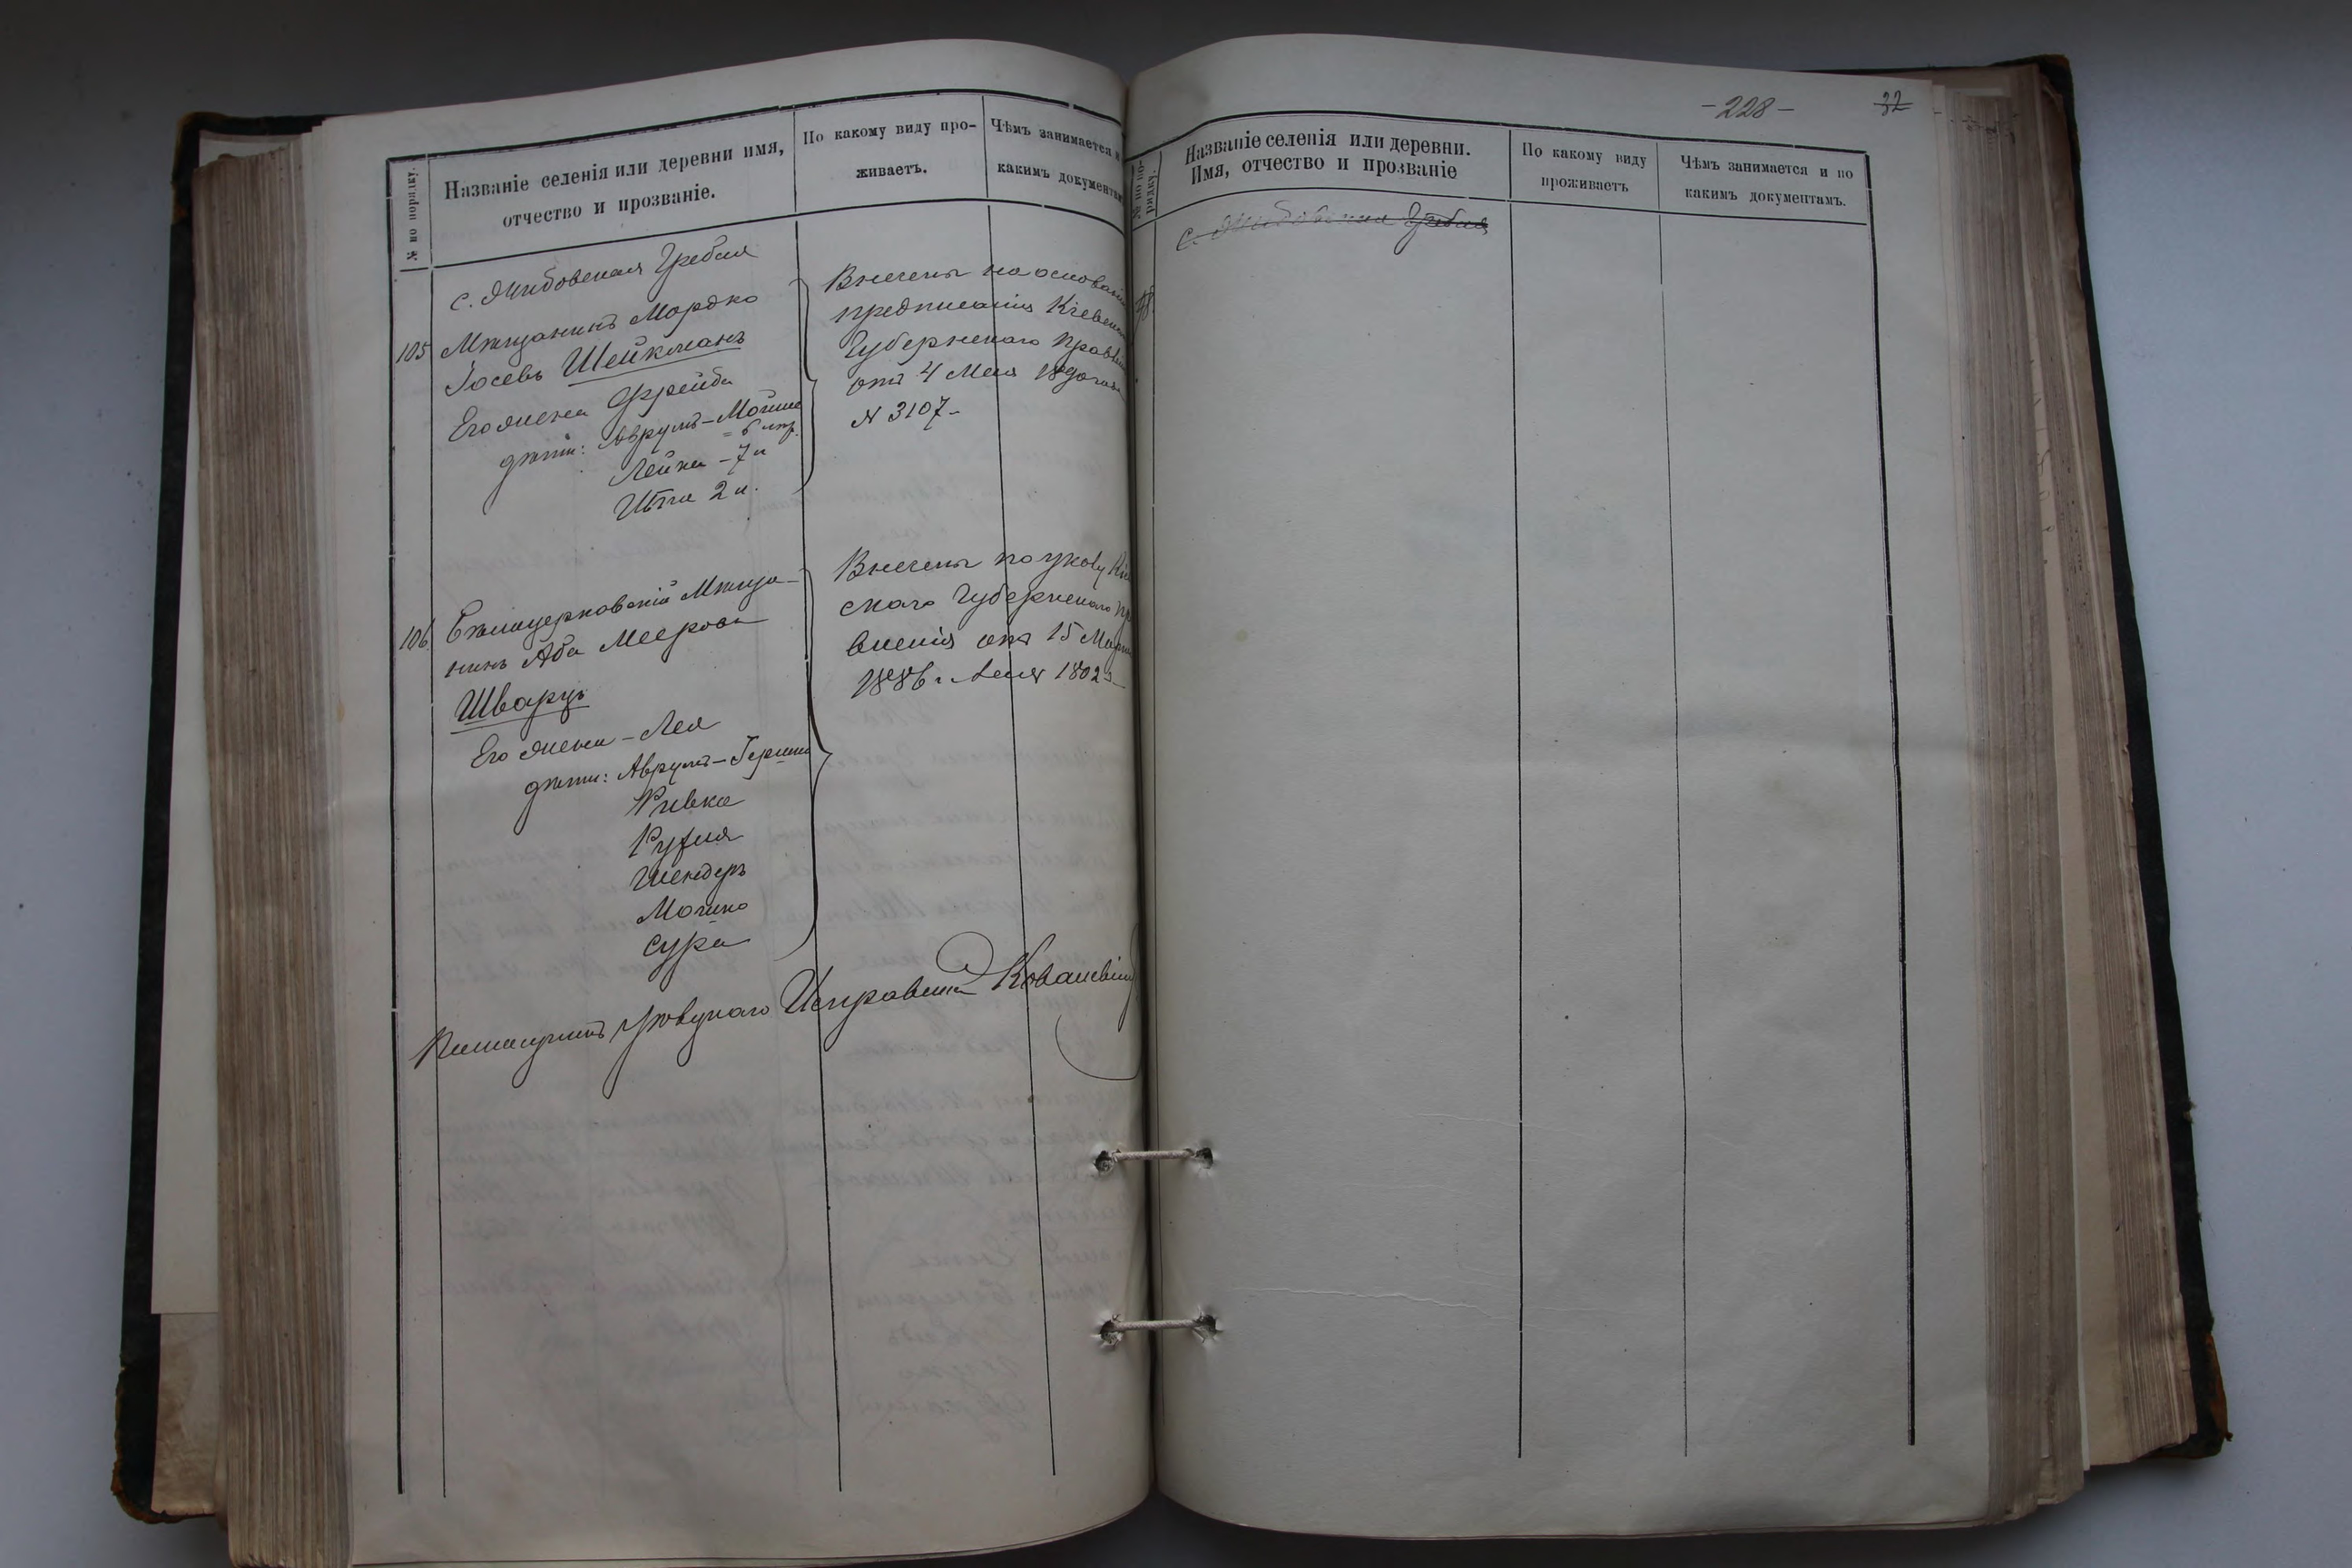 № по порядку.
Названіе селенія или деревни имя,
отчество и прозваніе.
По какому виду про-
живаетъ.
Чѣмъ занимается и
какимъ документ
с. Жидовская Гребля
105 Мѣщанинъ Мордко
Іосевъ Шейкманъ
Его жена Фрейда
дѣти: Аврумъ-Мошко
Лейка - 7 л
Итта 2 л.
Внесены на основаніи
предписанія Кіевска
Губернскаго Правл
отъ 4 Мая
№ 3107-
106 Бѣлицерковскій Мѣща-
нинъ Аба Меерова
Шварцъ
Его жена - Лея
дѣти: Аврумъ-Гершко
Ривка
Рухля
Шендеръ
Мошко
Сура
Внесены по указу Кіев
скаго Губернскаго Пра
вленія отъ 15 Марта
1886 г. за № 1802-
Помощникъ Уѣзднаго Исправника Ковалевскій
-228-
32
№ по по-
рядку.
Названіе селенія или деревни.
Имя, отчество и прозваніе
По какому виду
проживаетъ
Чѣмъ занимается и по
какимъ документамъ.
с. Жидовская Гребля